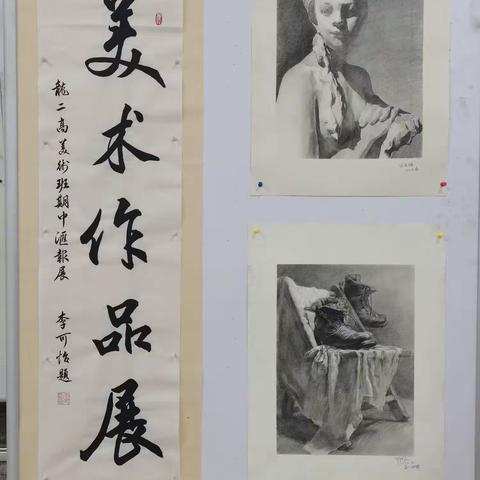 美术作品展
龍二高美術班期中滙報展
李可怡題